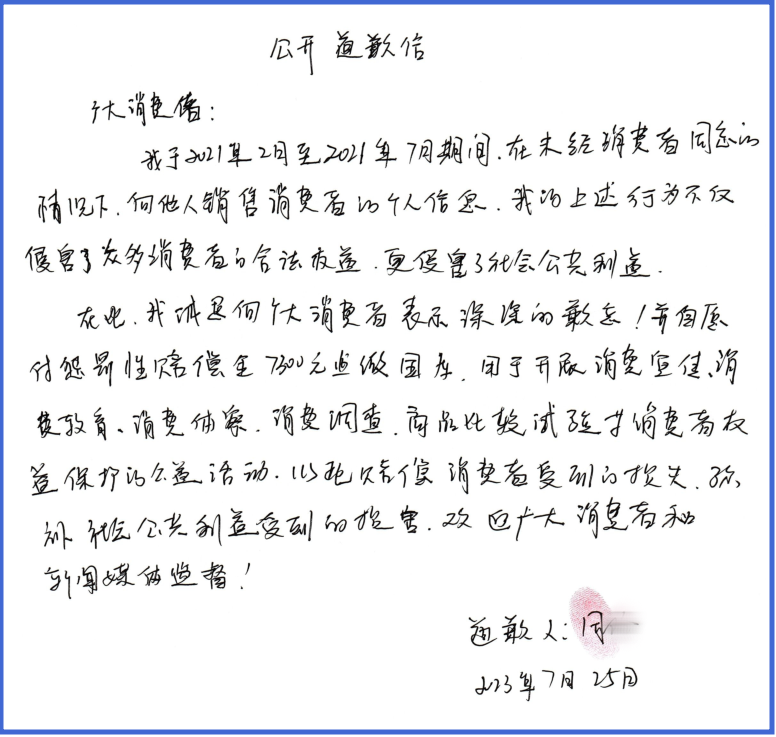 公开道歉信
广大消费者:
我于2021年2月至2021年7月期间,在未经消费者同意的
情况下,向他人销售消费者的个人信息,我的上述行为不仅
侵害了众多消费者的合法权益,更侵害了社会公共利益.
在此,我诚恳向广大消费者表示深深的歉意!并自愿
付惩罚性赔偿金7300元上缴国库,用于开展消费宣传、消
费教育、消费体察、消费调查、商品比较试验等消费者权
益保护的公益活动.以此赔偿消费者受到的损失,弥
补社会公共利益受到的损害,欢迎广大消费者和
新闻媒体监督!
道歉人:周
2023年7月25日